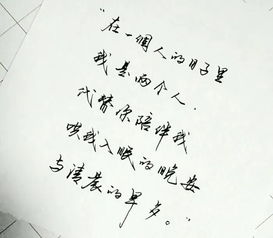 “在一個人的日子里
我是两个人.
代替你陪伴我
哄我入眠的晚安
与清晨的早多。”